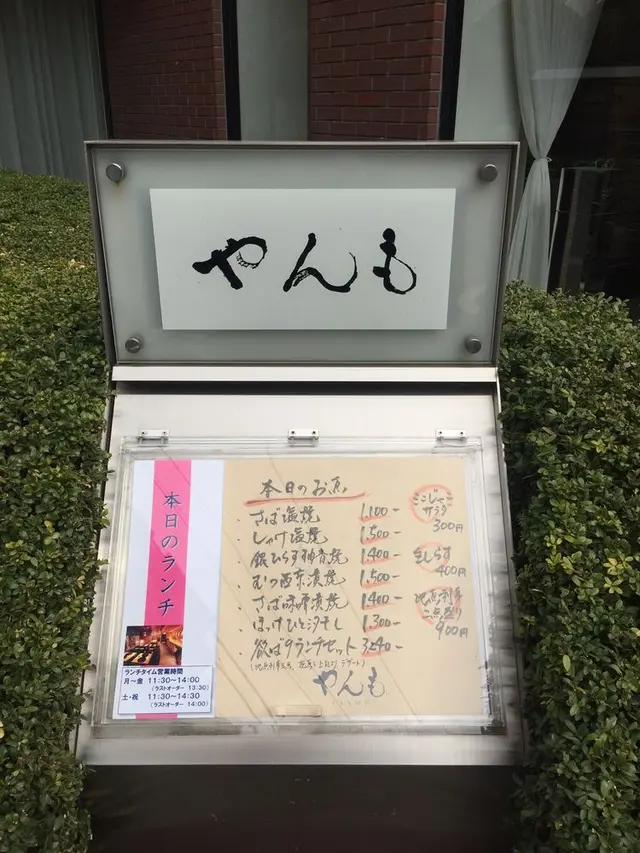 やんも
本日のランチ
ランチタイム営業時間
月～金 11:30～14:00
(ラストオーダー 13:30)
土・祝 11:30～14:30
(ラストオーダー 14:00)
本日のお魚
・さば塩焼 1,100-
・しゃけ塩焼 1,500-
・銀ひらす西京焼 1,400-
・むつ西京漬焼 1,500-
・さば味噌漬焼 1,400-
・ほっけひと汐干し 1,300-
・ランチセット 3240-
デザート)
やんも
じゃこ
サラダ
300円
生しらす
400円
地魚刺身
二点盛り
900円